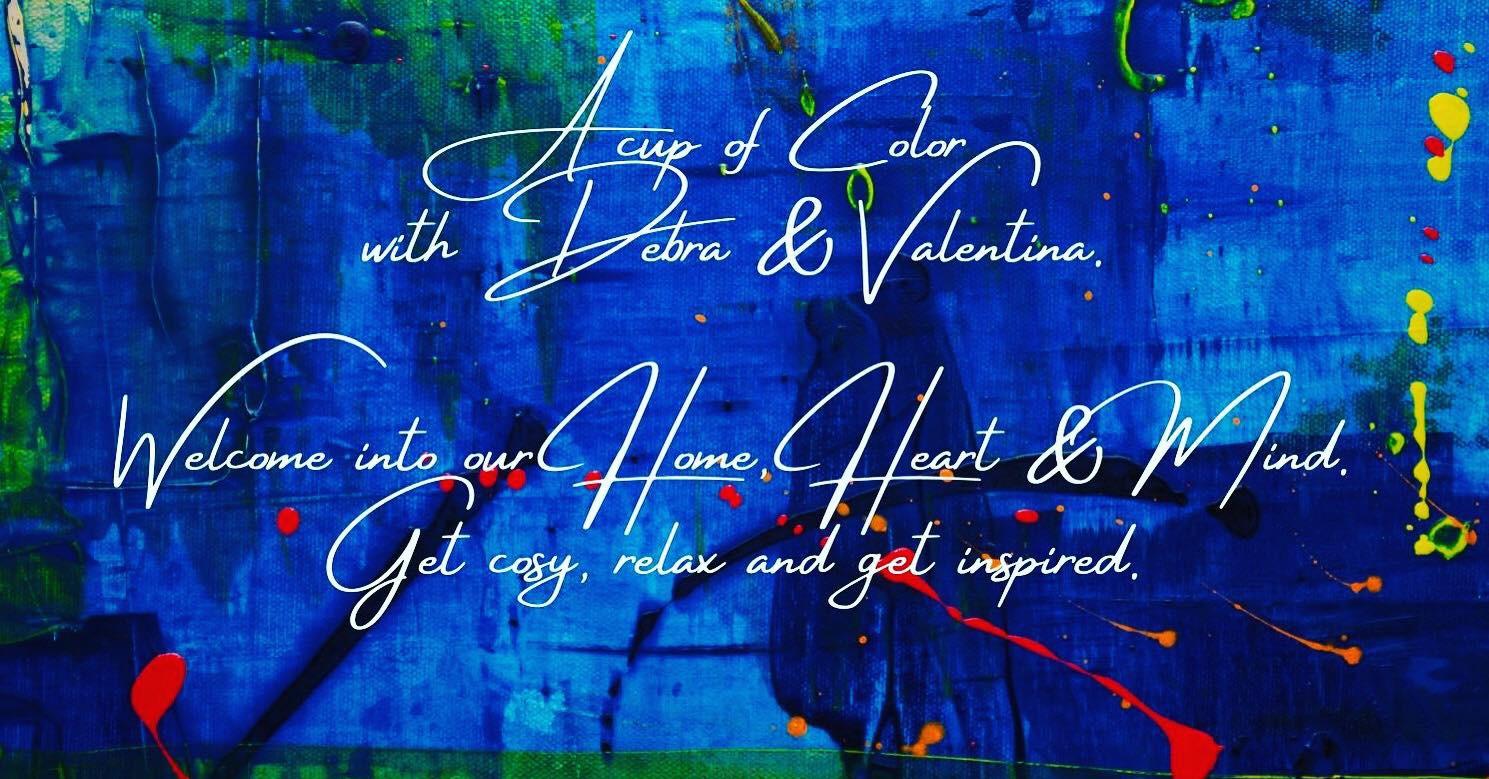 A cup of Color
with Debra & Valentina.
Welcome into our Home, Heart & Mind.
Get cosy, relax and get inspired.